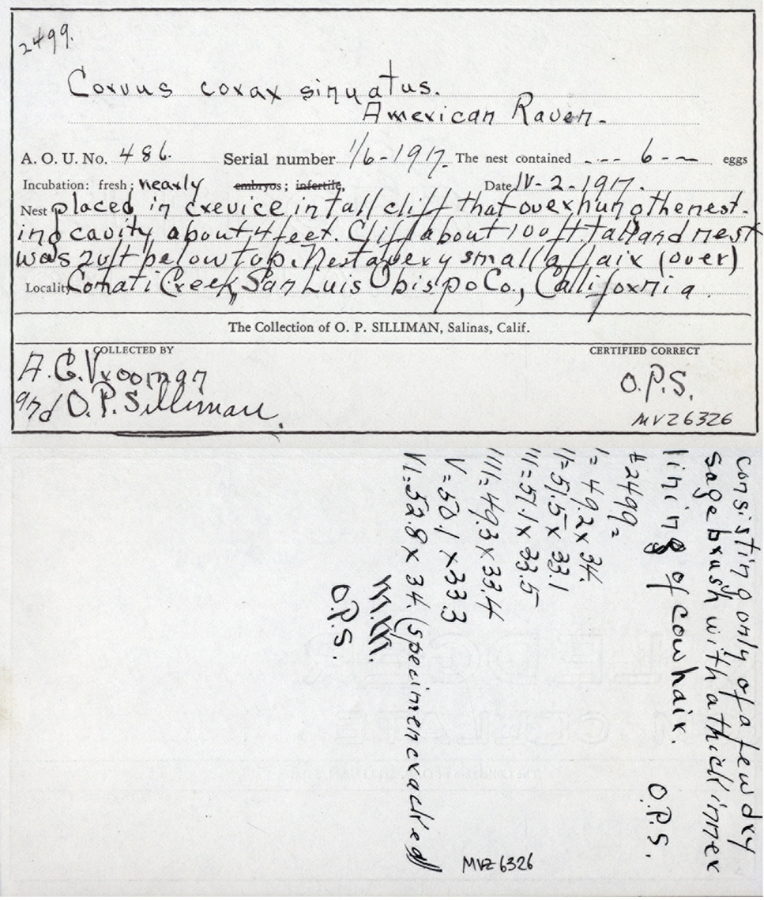 2499.
Corvus corax sinuatus.
American Raven.
A. O. U. No. 486. Serial number 1/6-1917. The nest contained --- 6 -- eggs
Incubation: fresh; nearly embryos; infertile, Date IV-2-1917.
Nest placed in crevice in tall cliff that overhung the nest-
ing cavity about 4 feet. Cliff about 100 ft. tall and nest
was 20 ft below top. Nest a very small affair (over)
Locality Comati Creek, San Luis Obispo Co., California.
The Collection of O. P. SILLIMAN, Salinas, Calif.
COLLECTED BY CERTIFIED CORRECT
A. C. Vrooman O.P.S.
and O. P. Silliman. MVZ 6326
consisting only of a few dry
sage brush with a thick inner
lining of cow hair. O.P.S.
#2499=
I= 49.2 x 34.
II= 51.5 x 33.1
III= 51.1 x 33.5
IIII= 49.3 x 33.4
V= 50.1 x 33.3
VI= 52.8 x 34. (specimen cracked)
m.m.
O.P.S.
MVZ 6326